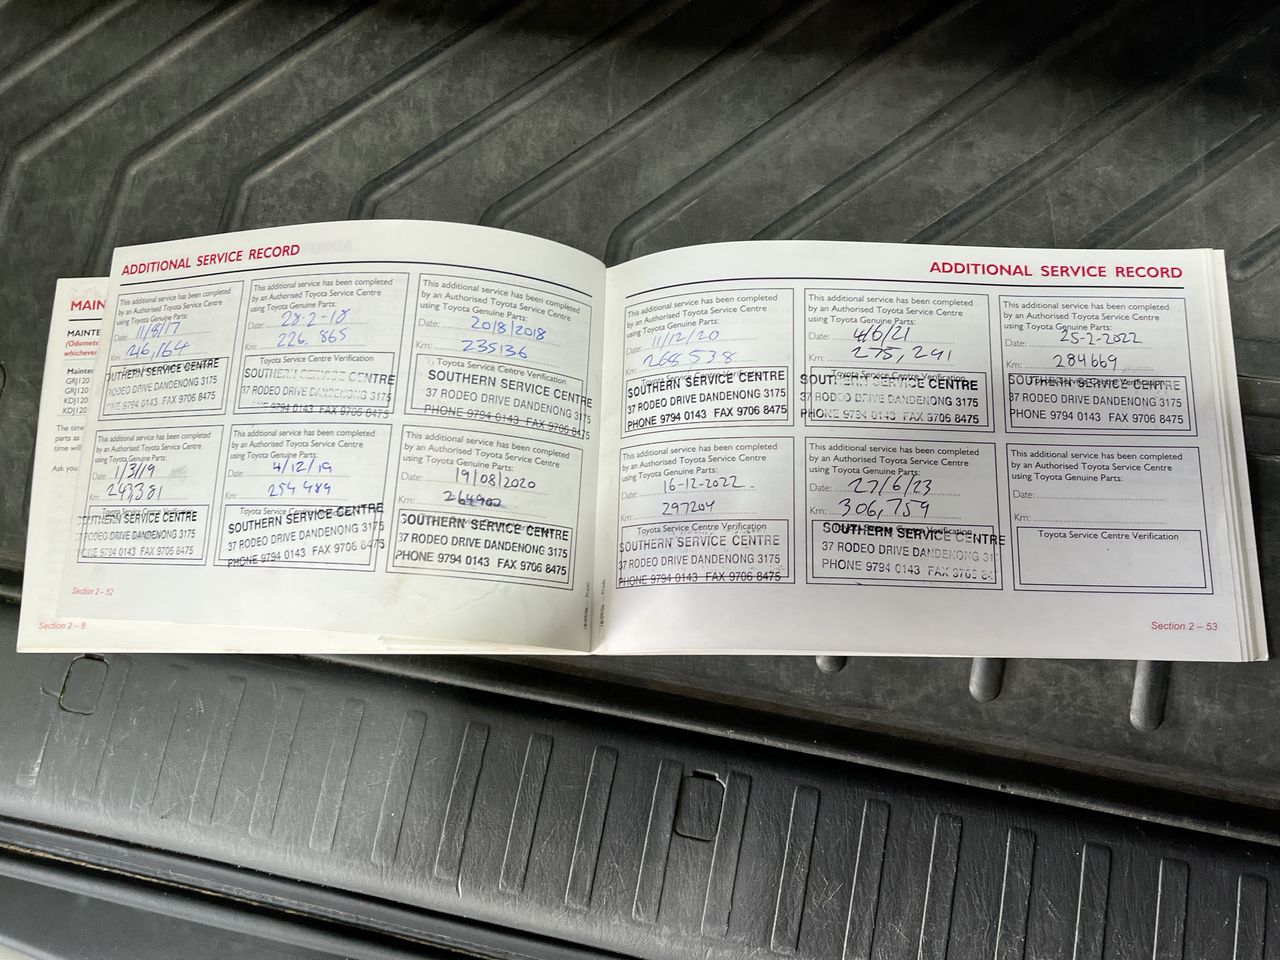 ADDITIONAL SERVICE RECORD
This additional service has been completed
by an Authorised Toyota Service Centre
using Toyota Genuine Parts:
Date: 11/8/17
Km:
SOUTHERN SERVICE CENTRE
37 RODEO DRIVE DANDENONG 3175
PHONE 9794 0143 FAX 9706 8475
This additional service has been completed
by an Authorised Toyota Service Centre
using Toyota Genuine Parts:
Date: 28-2-18
Km: 226,865
Toyota Service Centre Verification
SOUTHERN SERVICE CENTRE
37 RODEO DRIVE DANDENONG 3175
PHONE 9794 0143 FAX 9706 8475
This additional service has been completed
by an Authorised Toyota Service Centre
using Toyota Genuine Parts:
Date: 20/8/2018
Km: 235136
Toyota Service Centre Verification
SOUTHERN SERVICE CENTRE
37 RODEO DRIVE DANDENONG 3175
PHONE 9794 0143 FAX 9706 8475
This additional service has been completed
by an Authorised Toyota Service Centre
using Toyota Genuine Parts:
Date: 1/3/19
Km: 243,381
Toyota Service Centre Verification
SOUTHERN SERVICE CENTRE
37 RODEO DRIVE DANDENONG 3175
PHONE 9794 0143 FAX 9706 8475
This additional service has been completed
by an Authorised Toyota Service Centre
using Toyota Genuine Parts:
Date: 4/12/19
Km: 254,489
SOUTHERN SERVICE CENTRE
37 RODEO DRIVE DANDENONG 3175
PHONE 9794 0143 FAX 9706 8475
This additional service has been completed
by an Authorised Toyota Service Centre
using Toyota Genuine Parts:
Date: 19/08/2020
Km:
SOUTHERN SERVICE CENTRE
37 RODEO DRIVE DANDENONG 3175
PHONE 9794 0143 FAX 9706 8475
Section 2 – 52
ADDITIONAL SERVICE RECORD
This additional service has been completed
by an Authorised Toyota Service Centre
using Toyota Genuine Parts:
Date: 11/12/20
Km: 268538
SOUTHERN SERVICE CENTRE
37 RODEO DRIVE DANDENONG 3175
PHONE 9794 0143 FAX 9706 8475
This additional service has been completed
by an Authorised Toyota Service Centre
using Toyota Genuine Parts:
Date: 4/6/21
Km: 275,291
SOUTHERN SERVICE CENTRE
37 RODEO DRIVE DANDENONG 3175
PHONE 9794 0143 FAX 9706 8475
This additional service has been completed
by an Authorised Toyota Service Centre
using Toyota Genuine Parts:
Date: 25-2-2022
Km: 284669
SOUTHERN SERVICE CENTRE
37 RODEO DRIVE DANDENONG 3175
PHONE 9794 0143 FAX 9706 8475
This additional service has been completed
by an Authorised Toyota Service Centre
using Toyota Genuine Parts:
Date: 16-12-2022
Km: 297204
Toyota Service Centre Verification
SOUTHERN SERVICE CENTRE
37 RODEO DRIVE DANDENONG 3175
PHONE 9794 0143 FAX 9706 8475
This additional service has been completed
by an Authorised Toyota Service Centre
using Toyota Genuine Parts:
Date: 27/6/23
Km: 306,759
SOUTHERN SERVICE CENTRE
37 RODEO DRIVE DANDENONG 31
PHONE 9794 0143 FAX 9706 84
This additional service has been completed
by an Authorised Toyota Service Centre
using Toyota Genuine Parts:
Date:
Km:
Toyota Service Centre Verification
Section 2 – 53
MAIN
MAINTE
(Odomete
whichever
Mainten
GRJ120
GRJ120
KDJ120
KDJ120
The time
parts as
time will
Ask you
Section 2 – 8